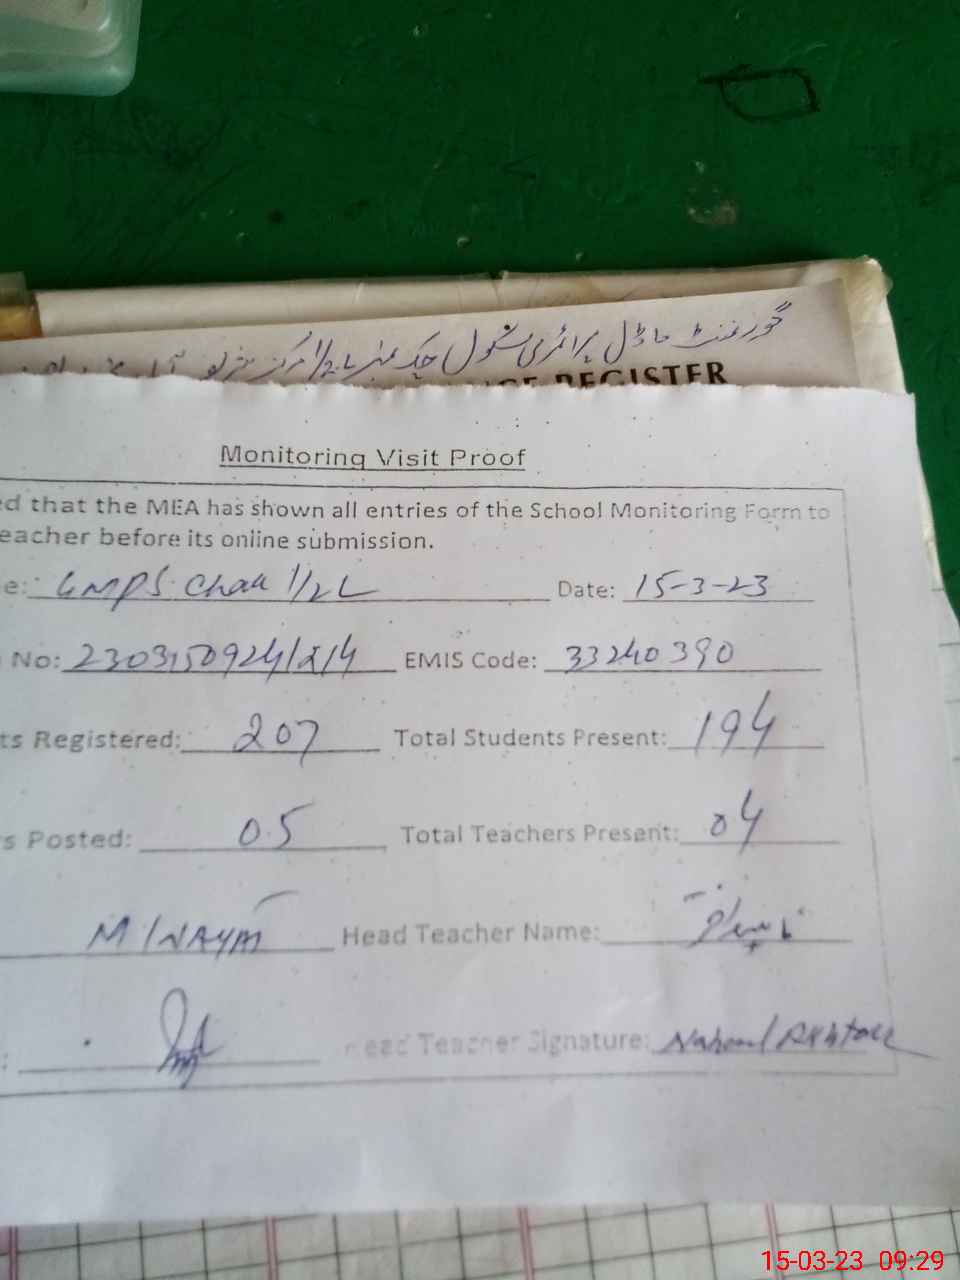 گورنمنٹ ماڈل پرائمری سکول چک نمبر
REGISTER
Monitoring Visit Proof
ed that the MEA has shown all entries of the School Monitoring Form to
eacher before its online submission.
e: GMPS Chak 1/2L Date: 15-3-23
No: EMIS Code: 33240390
ts Registered: 207 Total Students Present: 194
s Posted: 05 Total Teachers Present: 04
M INAYAT Head Teacher Name:
Head Teacher Signature:
15-03-23 09:29